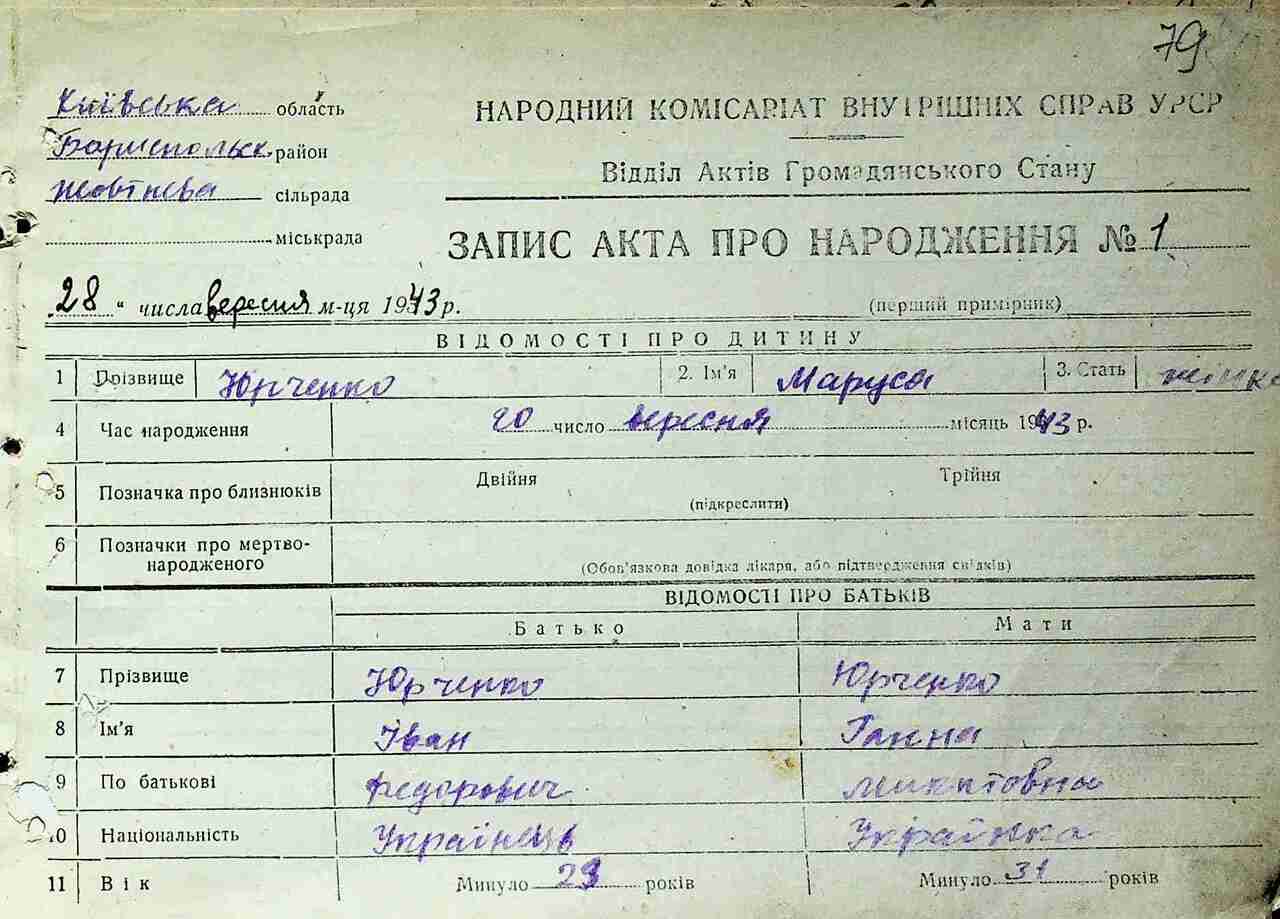 79
Київська область
НАРОДНИЙ КОМІСАРІАТ ВНУТРІШНІХ СПРАВ УРСР
Бориспольск. район
Відділ Актів Громадянського Стану
Жовтнева сільрада
міськрада
ЗАПИС АКТА ПРО НАРОДЖЕННЯ № 1
28 " числа вересня м-ця 1943 р.
(перший примірник)
ВІДОМОСТІ ПРО ДИТИНУ
1 Прізвище Юрченко 2. Ім'я Маруса 3. Стать жінка
4 Час народження 20 число вересня місяць 1943 р.
5 Позначка про близнюків Двійня Трійня
(підкреслити)
6 Позначки про мертво-
народженого (Обов'язкова довідка лікаря, або підтвердження свідків)
ВІДОМОСТІ ПРО БАТЬКІВ
Батько Мати
7 Прізвище Юрченко Юрченко
8 Ім'я Іван Ганна
9 По батькові Федорович Микитовна
10 Національність Українець Українка
11 Вік Минуло 29 років Минуло 31 років